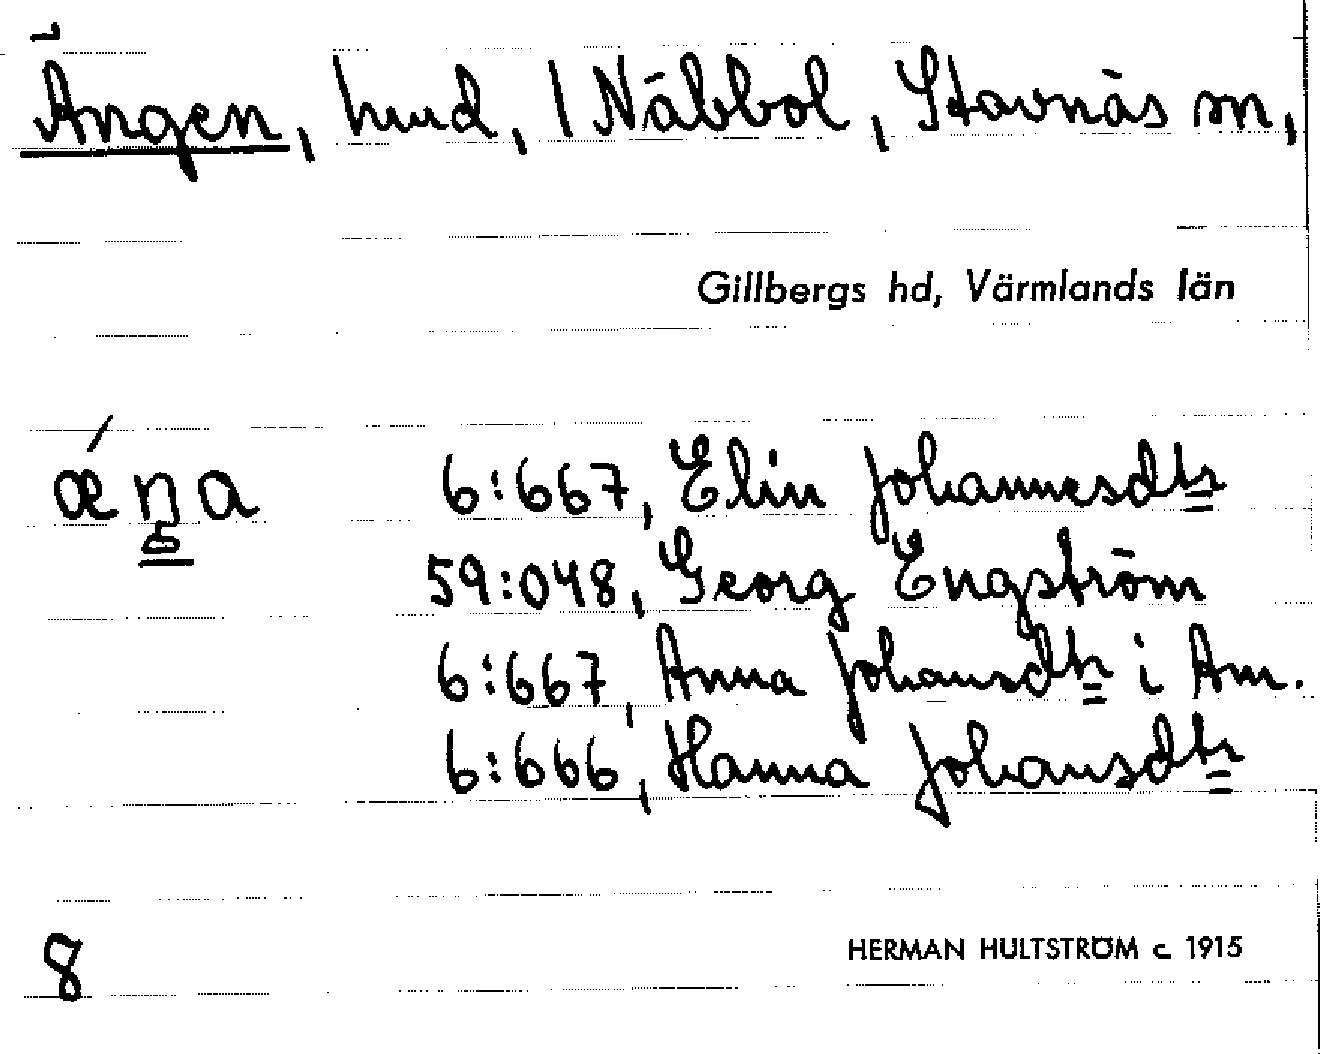 Ängen, hmd, 1 Näbbol, Stavnäs sn,
Gillbergs hd, Värmlands län
ǽŋa 6:667, Elin Johannesdtr
59:048, Georg Engström
6:667, Anna Johansdtr i Am.
6:666, Hanna Johansdtr
8 HERMAN HULTSTRÖM c 1915